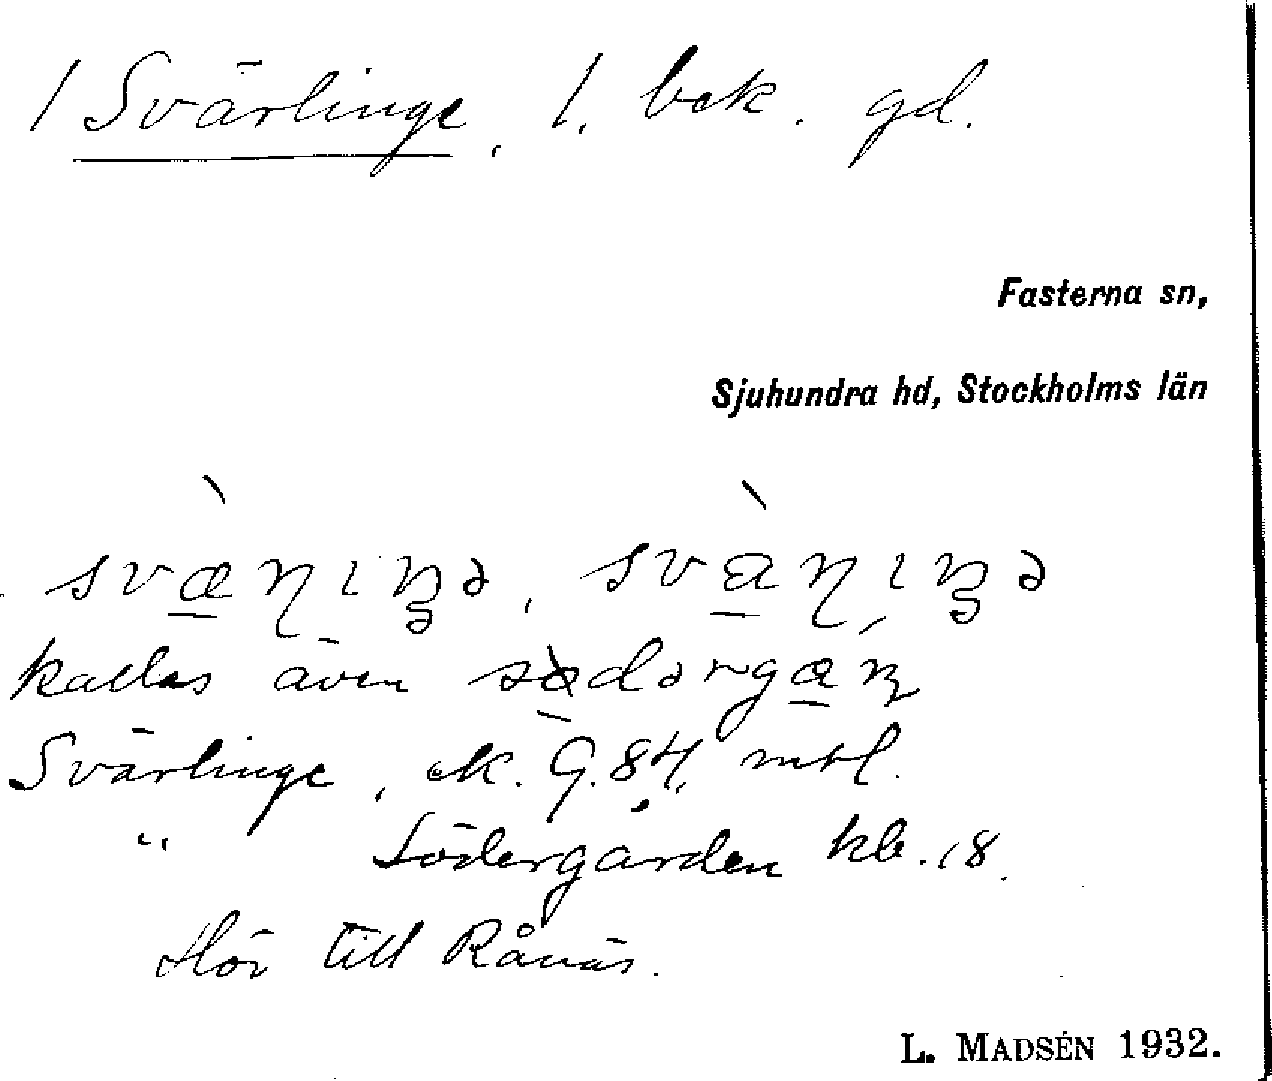 / Svärlinge, /. bek. gd.
Fasterna sn,
Sjuhundra hd, Stockholms län
kallas även
Svärlinge, ek. G. 84, mtl.
" Södergården kb. 18.
Hör till Rånäs.
L. MADSÉN 1932.